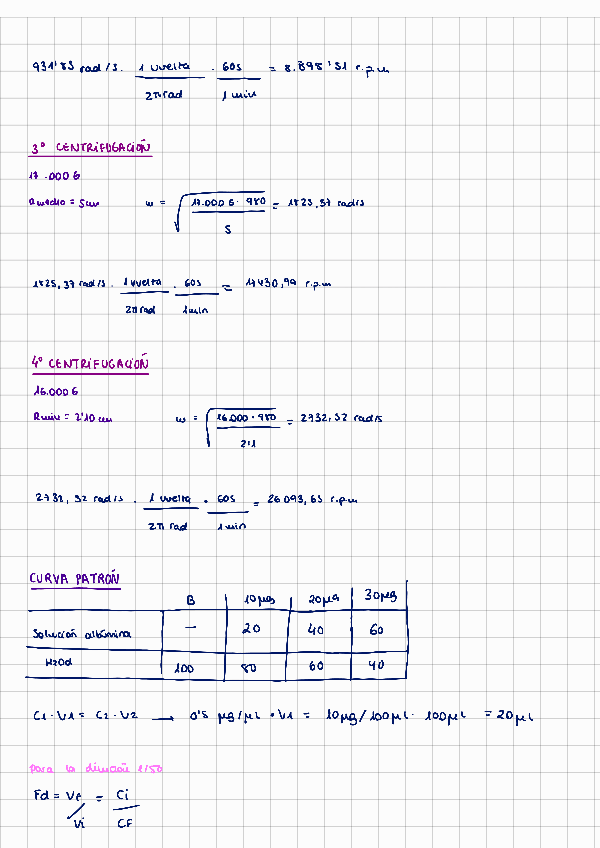 931'83 rad/s. 1 vuelta/2π rad · 60s/1 min = 8.898'31 r.p.m
3º CENTRIFUGACIÓN
17.000 G
Rmedio = 5cm w = √(17.000 G · 980/5) = 1825,37 rad/s
1825,37 rad/s. 1 vuelta/2π rad · 60s/1 min = 17430,99 r.p.m
4º CENTRIFUGACIÓN
16.000 G
Rmin = 2'10 cm w = √(16.000 · 980/2'1) = 2732,52 rad/s
2732,52 rad/s · 1 vuelta/2π rad · 60s/1 min = 26093,63 r.p.m
CURVA PATRÓN
B 10μg 20μg 30μg
Solución albúmina — 20 40 60
H2Od 100 80 60 40
C1·V1 = C2·V2 → 0'5 μg/μL · V1 = 10μg/100μL · 100μL = 20μL
para la dilución 1:50
Fd = Vf/Vi = Ci/CF